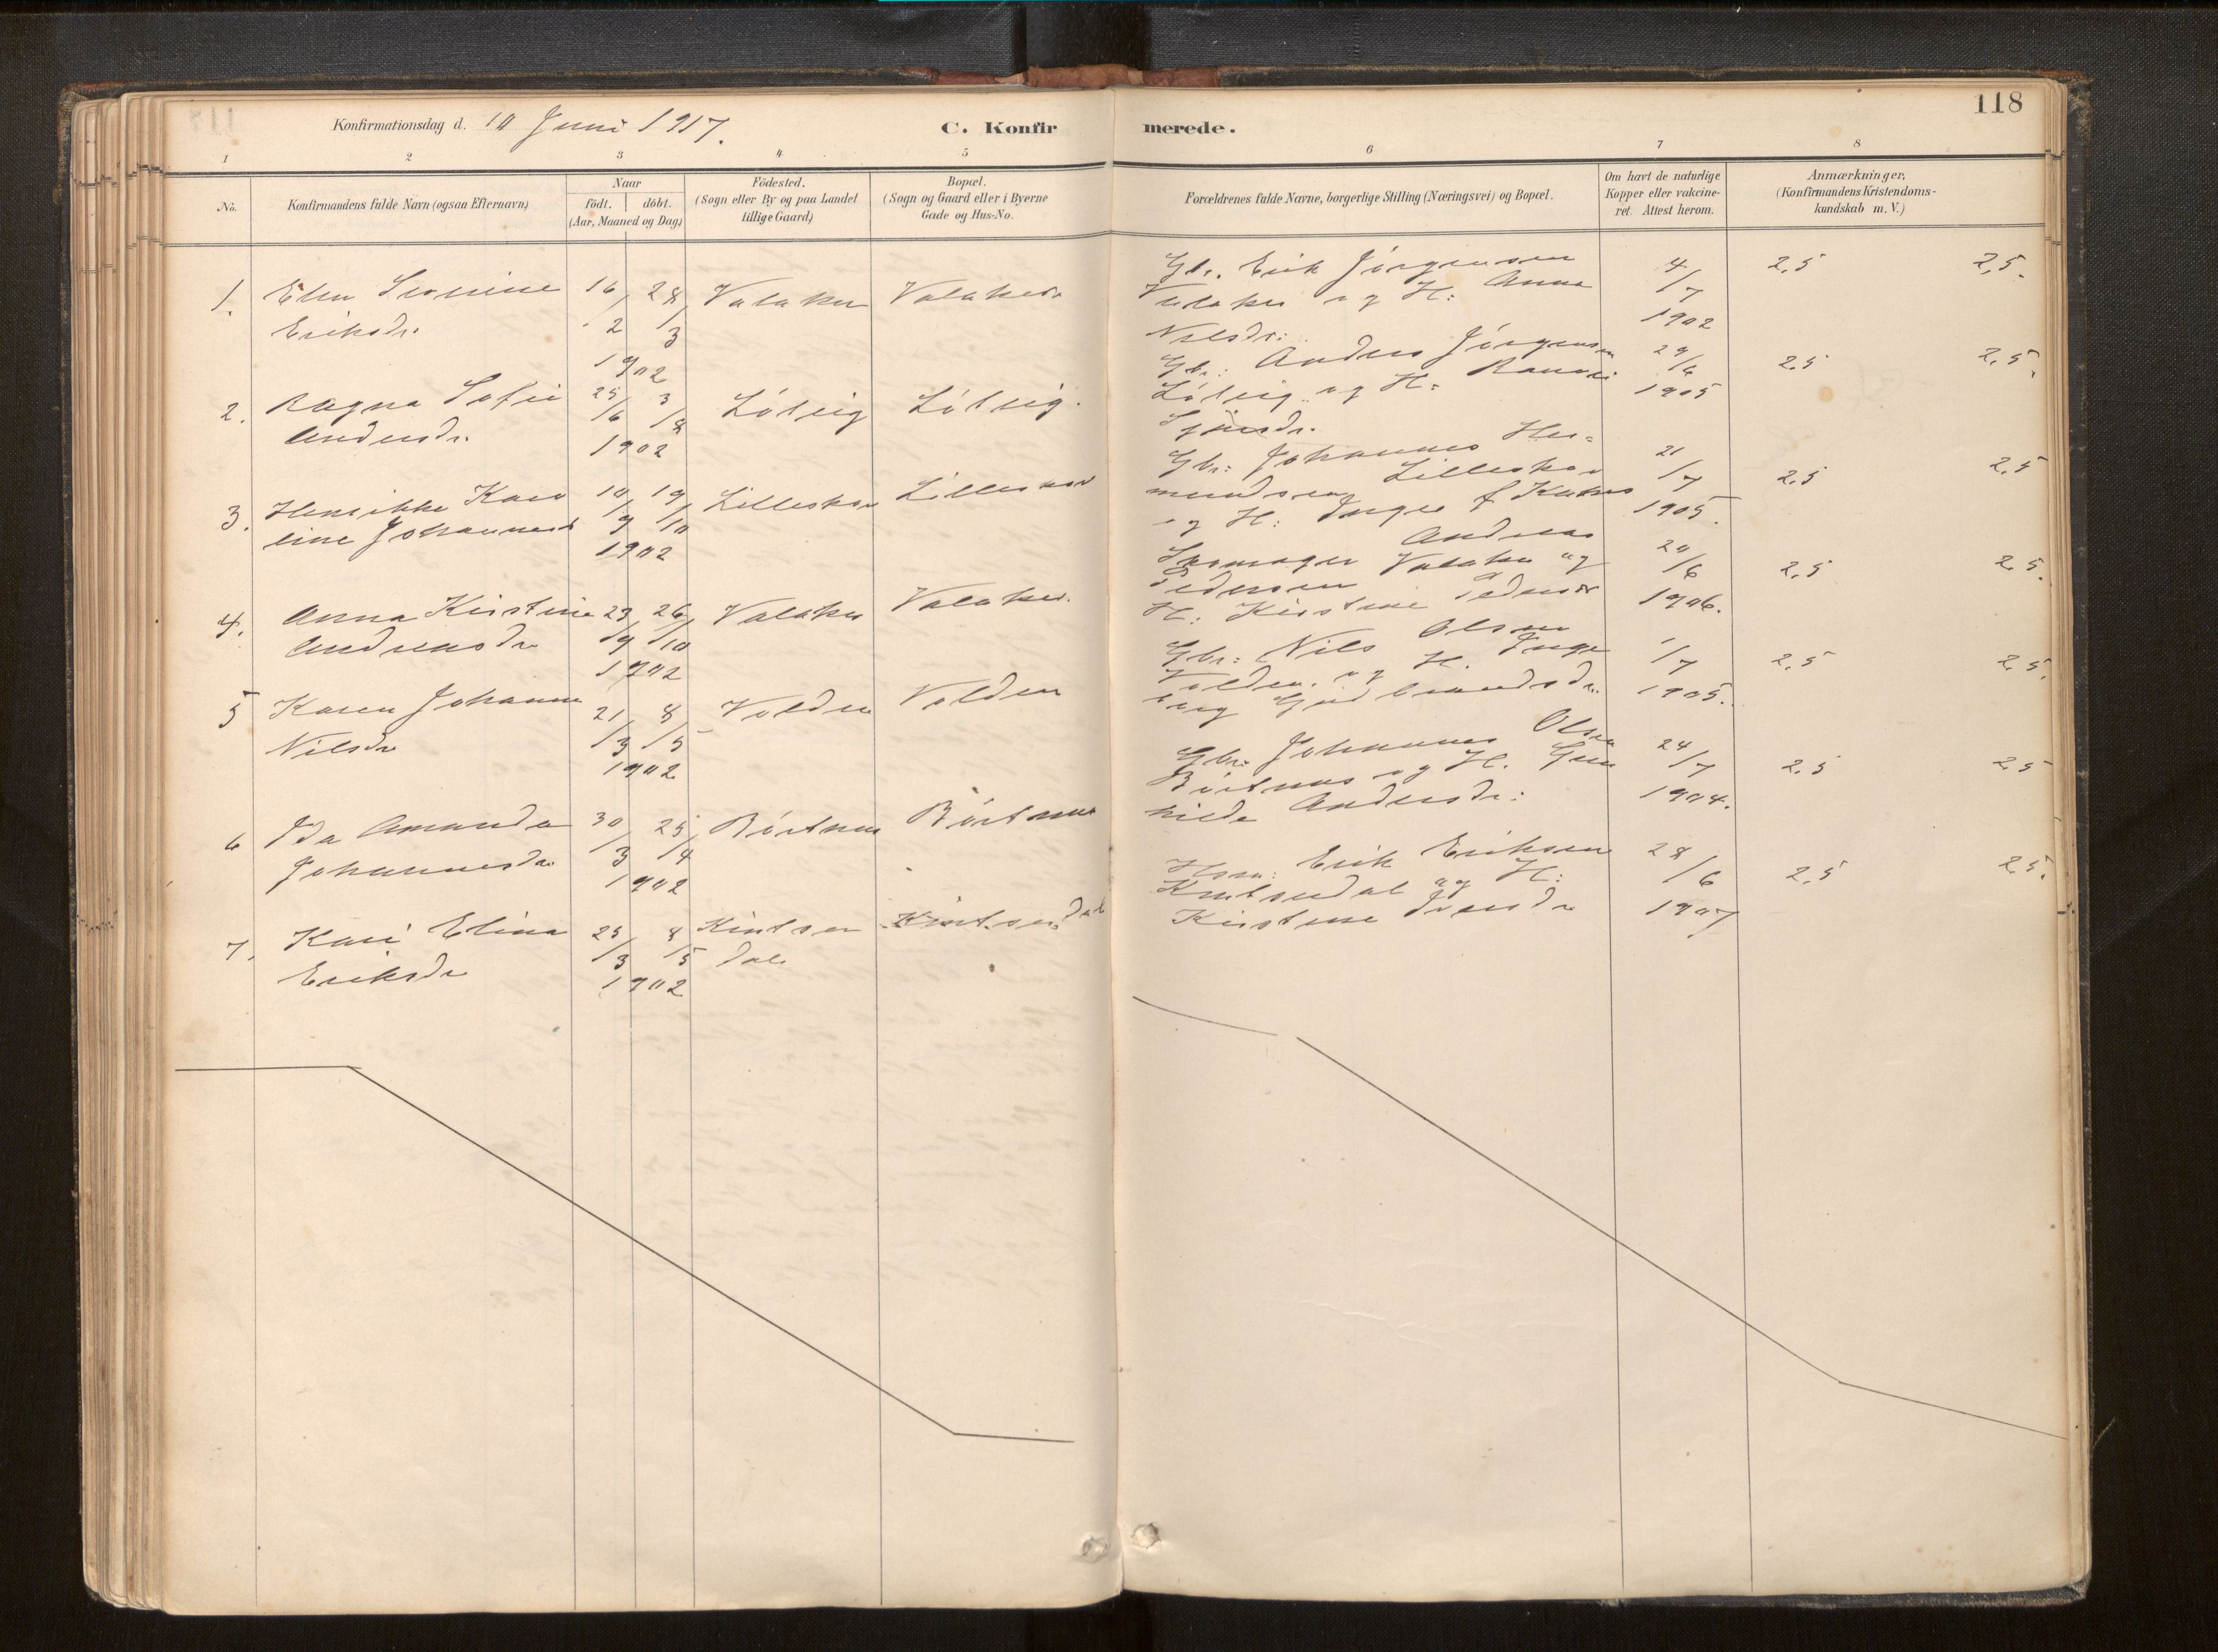 118
Konfirmationsdag d. 10 Juni 1917.
C. Konfirmerede.
1 2 3 4 5 6 7 8
No.
Konfirmandens fulde Navn (ogsaa Efternavn)
Naar
födt. döbt.
(Aar, Maaned og Dag)
Födested.
(Sogn eller By og paa Landet
tillige Gaard)
Bopæl.
(Sogn og Gaard eller i Byerne
Gade og Hus-No.
Forældrenes fulde Navne, borgerlige Stilling (Næringsvei) og Bopæl.
Om havt de naturlige
Kopper eller vakcine-
ret. Attest herom.
Anmærkninger.
(Konfirmandens Kristendoms-
kundskab m. V.)
1. Elen 16/2 28/3 Valaker Valaker
Eriksdr.
1902
Gbr. Erik Jörgensen
Valaker og H: Anna
Nilsdr:
4/7 1902
2,5 2,5.
2. Ragna Sofie 25/6 3/8 Lötvig Lötvig.
Andersdr.
1902
Gbr: Anders Jörgensen
Lötvig og H:
29/6 1905
2,5 2,5.
3. Henrikke Karo 10/9 19/10 Lilleskar Lilleskar
line Johannesd
1902
Gbr: Johannes Her=
mundsen Lilleskar
og H: Inger
21/7 1905.
2,5 2,5
4. Anna Kirstine 23/9 26/10 Valaker Valaker.
Andreasdr
1902
Skomager Andreas
Pedersen Valaker og
H. Kirstine Pedersdr
20/6 1906.
2,5 2,5.
5 Karen Johanne 21/3 8/5 Volden Volden
Nilsdr
1902
Gbr: Nils Olsen
Volden og H. Inge
borg Gudbrandsdr.
1/7 1905.
2,5 2,5.
6 Ida Amanda 30/3 25/4 Börtnes Börtnes
Johannesdr
1902
Gbr: Johannes Olsen
Börtnes og H. Gun
hilde Andersdr:
24/7 1904.
2,5 2,5
7. Kari Elina 25/3 8/5 Kintsen Kintsendal
Eriksdr dal
1902
Hsm: Erik Eriksen
Kintsendal og H:
Kirstine Iversdr
28/6 1907
2,5 2,5.